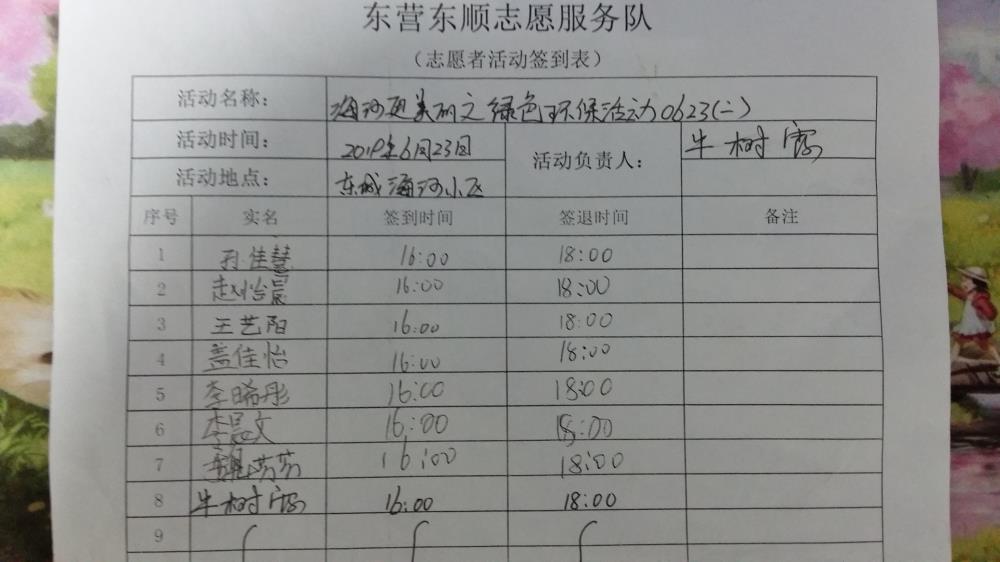 东营东顺志愿服务队
（志愿者活动签到表）
活动名称： 海河更美丽之绿色环保活动0623(二)
活动时间： 2019年6月23日 活动负责人： 牛树
活动地点： 东城海河小区
序号 实名 签到时间 签退时间 备注
1 孙佳慧 16:00 18:00
2 赵怡晨 16:00 18:00
3 王艺阳 16:00 18:00
4 盖佳怡 16:00 18:00
5 李晞彤 16:00 18:00
6 李晨文 16:00 18:00
7 魏芸芸 16:00 18:00
8 牛树 16:00 18:00
9